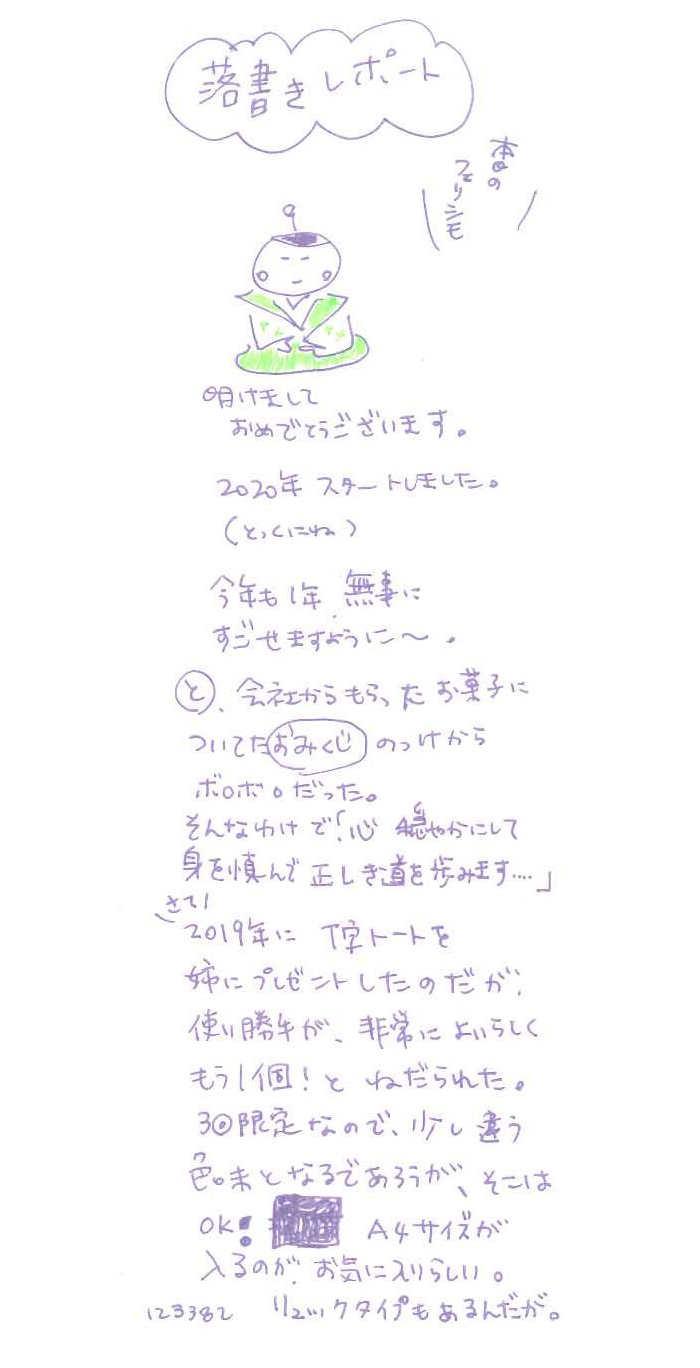 落書きレポート
本日の
フェリシモ
明けまして
おめでとうございます。
2020年 スタートしました。
(とっくにね)
今年も1年 無事に
すごせますように〜。
と、会社からもらった お菓子に
ついてたおみくじ のっけから
ボロボロだった。
そんなわけで「心 穏やかにして
身を慎んで 正しき道を歩みます....」
さて!
2019年に T字トートを
姉にプレゼントしたのだが、
使い勝手が、非常に よいらしく
もう1個!と ねだられた。
3回限定なので、少し違う
色味となるであろうが、そこは
OK! A4サイズが
入るのが、お気に入りらしい。
123382 リュックタイプもあるんだが。